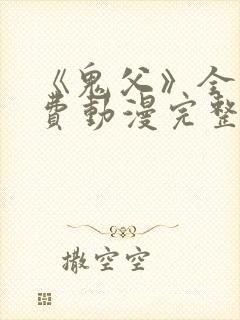 《鬼父》全
费动漫完整
撒空空